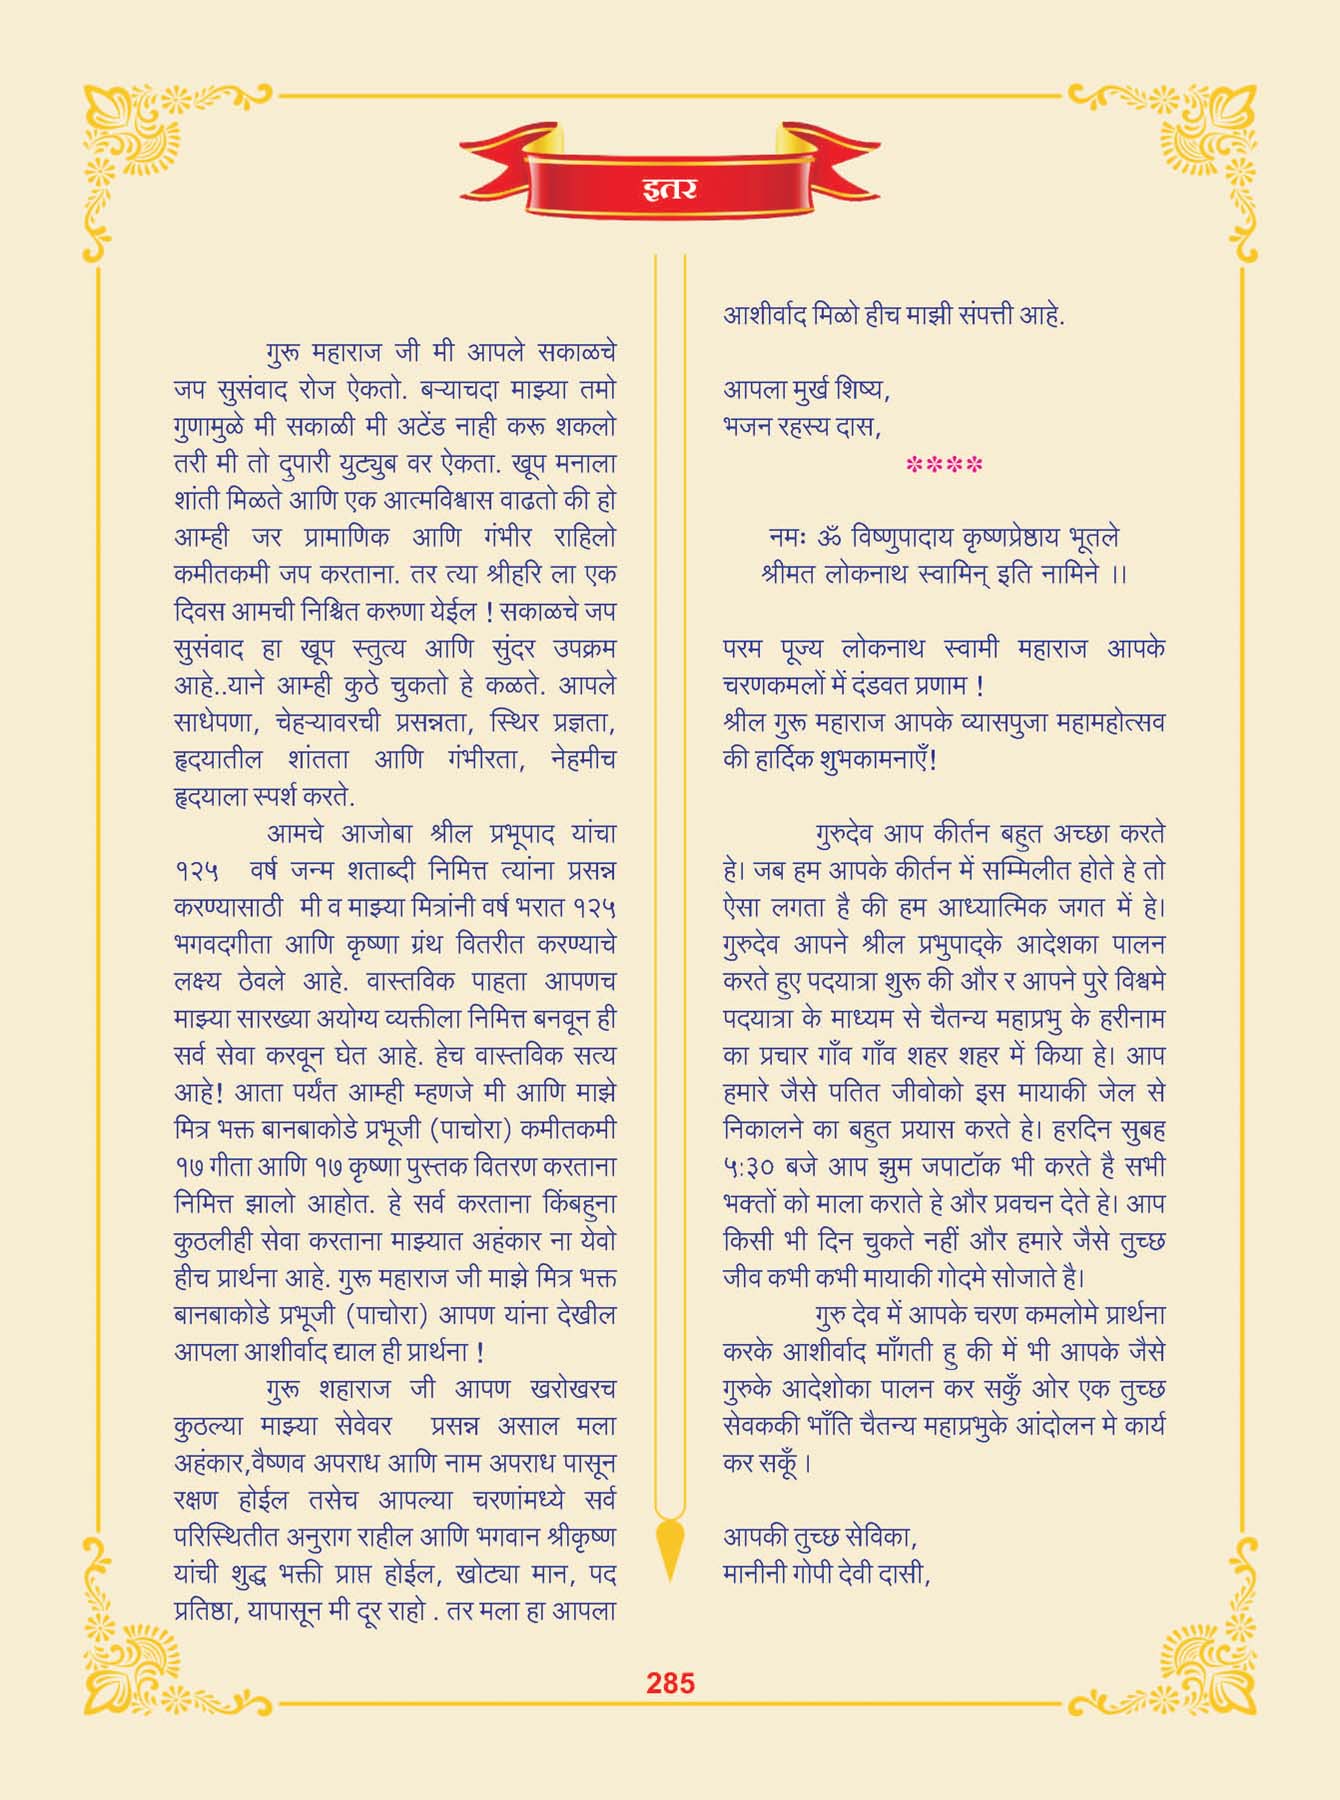 इतर
गुरू महाराज जी मी आपले सकाळचे
जप सुसंवाद रोज ऐकतो. बऱ्याचदा माझ्या तमो
गुणामुळे मी सकाळी मी अटेंड नाही करू शकलो
तरी मी तो दुपारी युट्युब वर ऐकता. खूप मनाला
शांती मिळते आणि एक आत्मविश्वास वाढतो की हो
आम्ही जर प्रामाणिक आणि गंभीर राहिलो
कमीतकमी जप करताना. तर त्या श्रीहरि ला एक
दिवस आमची निश्चित करुणा येईल ! सकाळचे जप
सुसंवाद हा खूप स्तुत्य आणि सुंदर उपक्रम
आहे..याने आम्ही कुठे चुकतो हे कळते. आपले
साधेपणा, चेहऱ्यावरची प्रसन्नता, स्थिर प्रज्ञता,
हृदयातील शांतता आणि गंभीरता, नेहमीच
हृदयाला स्पर्श करते.
आमचे आजोबा श्रील प्रभूपाद यांचा
१२५ वर्ष जन्म शताब्दी निमित्त त्यांना प्रसन्न
करण्यासाठी मी व माझ्या मित्रांनी वर्ष भरात १२५
भगवदगीता आणि कृष्णा ग्रंथ वितरीत करण्याचे
लक्ष्य ठेवले आहे. वास्तविक पाहता आपणच
माझ्या सारख्या अयोग्य व्यक्तीला निमित्त बनवून ही
सर्व सेवा करवून घेत आहे. हेच वास्तविक सत्य
आहे! आता पर्यंत आम्ही म्हणजे मी आणि माझे
मित्र भक्त बानबाकोडे प्रभूजी (पाचोरा) कमीतकमी
१७ गीता आणि १७ कृष्णा पुस्तक वितरण करताना
निमित्त झालो आहोत. हे सर्व करताना किंबहुना
कुठलीही सेवा करताना माझ्यात अहंकार ना येवो
हीच प्रार्थना आहे. गुरू महाराज जी माझे मित्र भक्त
बानबाकोडे प्रभूजी (पाचोरा) आपण यांना देखील
आपला आशीर्वाद द्याल ही प्रार्थना !
गुरू शहाराज जी आपण खरोखरच
कुठल्या माझ्या सेवेवर प्रसन्न असाल मला
अहंकार,वैष्णव अपराध आणि नाम अपराध पासून
रक्षण होईल तसेच आपल्या चरणांमध्ये सर्व
परिस्थितीत अनुराग राहील आणि भगवान श्रीकृष्ण
यांची शुद्ध भक्ती प्राप्त होईल, खोट्या मान, पद
प्रतिष्ठा, यापासून मी दूर राहो . तर मला हा आपला
आशीर्वाद मिळो हीच माझी संपत्ती आहे.
आपला मुर्ख शिष्य,
भजन रहस्य दास,
****
नमः ॐ विष्णुपादाय कृष्णप्रेष्ठाय भूतले
श्रीमत लोकनाथ स्वामिन् इति नामिने ।।
परम पूज्य लोकनाथ स्वामी महाराज आपके
चरणकमलों में दंडवत प्रणाम !
श्रील गुरू महाराज आपके व्यासपुजा महामहोत्सव
की हार्दिक शुभकामनाएँ!
गुरुदेव आप कीर्तन बहुत अच्छा करते
हे। जब हम आपके कीर्तन में सम्मिलीत होते हे तो
ऐसा लगता है की हम आध्यात्मिक जगत में हे।
गुरुदेव आपने श्रील प्रभुपाद्के आदेशका पालन
करते हुए पदयात्रा शुरू की और र आपने पुरे विश्वमे
पदयात्रा के माध्यम से चैतन्य महाप्रभु के हरीनाम
का प्रचार गाँव गाँव शहर शहर में किया हे। आप
हमारे जैसे पतित जीवोको इस मायाकी जेल से
निकालने का बहुत प्रयास करते हे। हरदिन सुबह
५:३० बजे आप झुम जपाटॉक भी करते है सभी
भक्तों को माला कराते हे और प्रवचन देते हे। आप
किसी भी दिन चुकते नहीं और हमारे जैसे तुच्छ
जीव कभी कभी मायाकी गोदमे सोजाते है।
गुरु देव में आपके चरण कमलोमे प्रार्थना
करके आशीर्वाद माँगती हु की में भी आपके जैसे
गुरुके आदेशोका पालन कर सकुँ ओर एक तुच्छ
सेवककी भाँति चैतन्य महाप्रभुके आंदोलन मे कार्य
कर सकूँ ।
आपकी तुच्छ सेविका,
मानीनी गोपी देवी दासी,
285